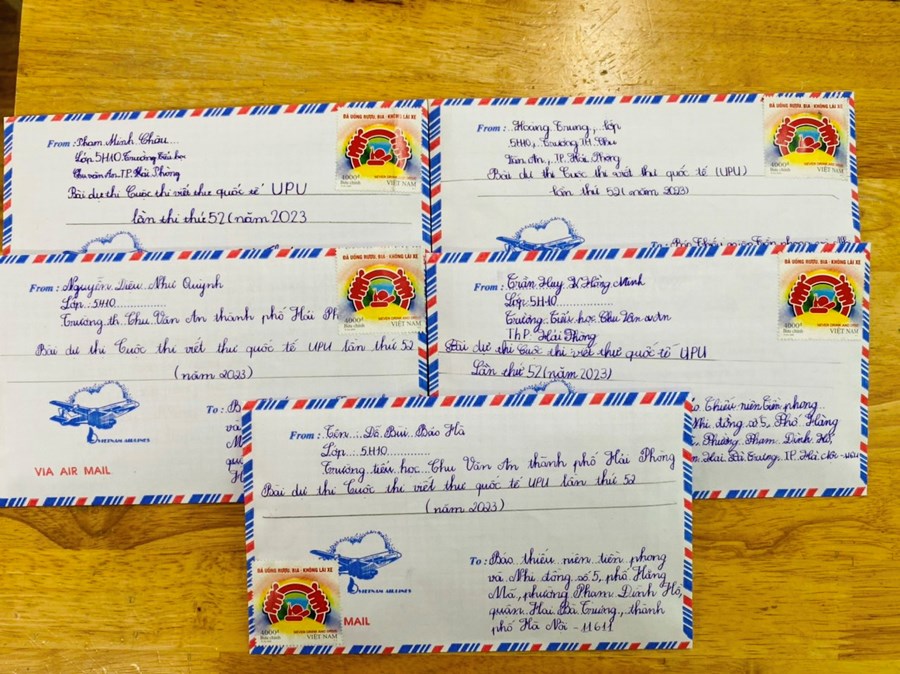 From: Phạm Minh Châu...
Lớp 5H10 Trường Tiểu học
Chu văn An TP. Hải Phòng
Bài dự thi Cuộc thi viết thư quốc tế UPU
lần thi thứ 52 (năm 2023
ĐÃ UỐNG RƯỢU BIA - KHÔNG LÁI XE
4000đ
Bưu chính
VIỆT NAM
From: Hoàng Trung, Lớp
5H10, Trường TH. Chu
Văn An, TP. Hải Phòng
Bài dự thi Cuộc thi viết thư quốc tế (UPU)
lần thứ 52 (năm 2023)
ĐÃ UỐNG RƯỢU BIA - KHÔNG LÁI XE
4000đ
Bưu chính
VIỆT NAM
To:
From: Nguyễn Diệu Như Quỳnh
Lớp...5H10............
Trường th. Chu Văn An thành phố Hải Ph
Bài dự thi Cuộc thi viết thư quốc tế UPU lần thứ 52
(năm 2023)
ĐÃ UỐNG RƯỢU BIA - KHÔNG LÁI XE
4000đ
Bưu chính
VIỆT NAM
VIETNAM AIRLINES
VIA AIR MAIL
To: B
và
M
qu
H
From: Trần Huy Hồng Minh
Lớp: 5H10............
Trường Tiểu học Chu Văn An
Th.P Hải Phòng
Bài dự thi Cuộc thi viết thư quốc tế UPU
Lần thứ 52 (năm 2023)
ĐÃ UỐNG RƯỢU BIA - KHÔNG LÁI XE
4000đ
Bưu chính
VIỆT NAM
áo Thiếu niên Tiền phong
Nhi đồng số 5, Phố Hàng
Phường Phạm Đình Hổ
Hai Bà Trưng, TP. Hà Nội
From: Tên... Đỗ Bùi Bảo Hà
Lớp....5H10............
Trường tiểu học Chu Văn An thành phố Hải Phòng
Bài dự thi Cuộc thi viết thư quốc tế UPU lần thứ 52
(năm 2023)
VIETNAM AIRLINES
MAIL
ĐÃ UỐNG RƯỢU BIA - KHÔNG LÁI XE
4000đ
Bưu chính
VIỆT NAM
To: Báo thiếu niên tiền phong
và Nhi đồng số 5, phố Hàng
Mã, phường Phạm Đình Hổ,
quận Hai Bà Trưng, thành
phố Hà Nội - 11611